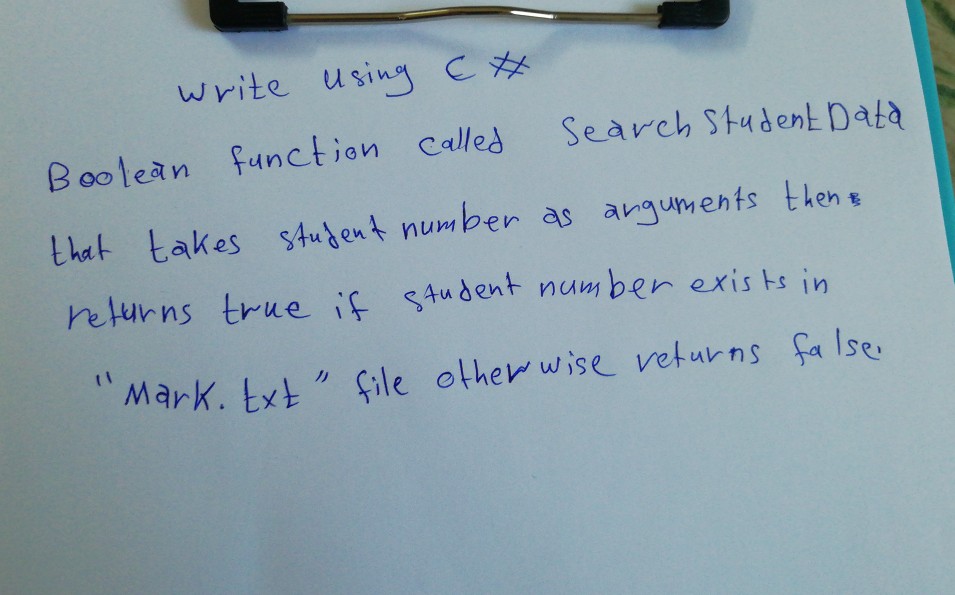 write using C #
Boolean function called SearchStudentData
that takes student number as arguments then
returns true if student number exists in
"Mark.txt" file otherwise returns false.